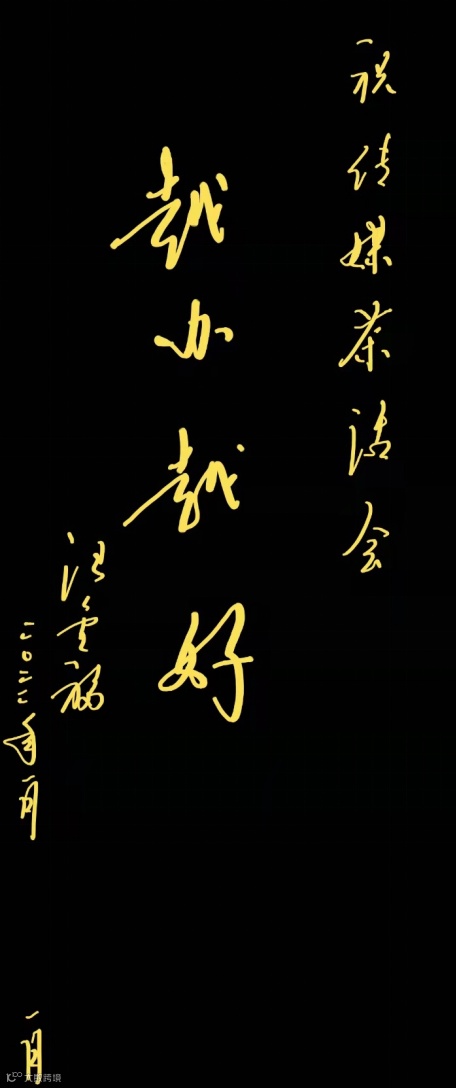 祝传媒茶话会
越办越好
汪云福
二〇二二年一月
一月
大数跨境